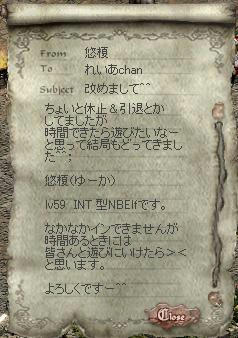 From 悠榎
To れいあchan
Subject 改めまして^^
ちょいと休止＆引退とか
してましたが
時間できたら遊びたいなー
と思って結局もどってきまし
た^^;
悠榎(ゆーか)
lv59 INT 型NBElfです。
なかなかインできませんが
時間あるときには
皆さんと遊びにいけたら><
と思います。
よろしくですー^^
Close